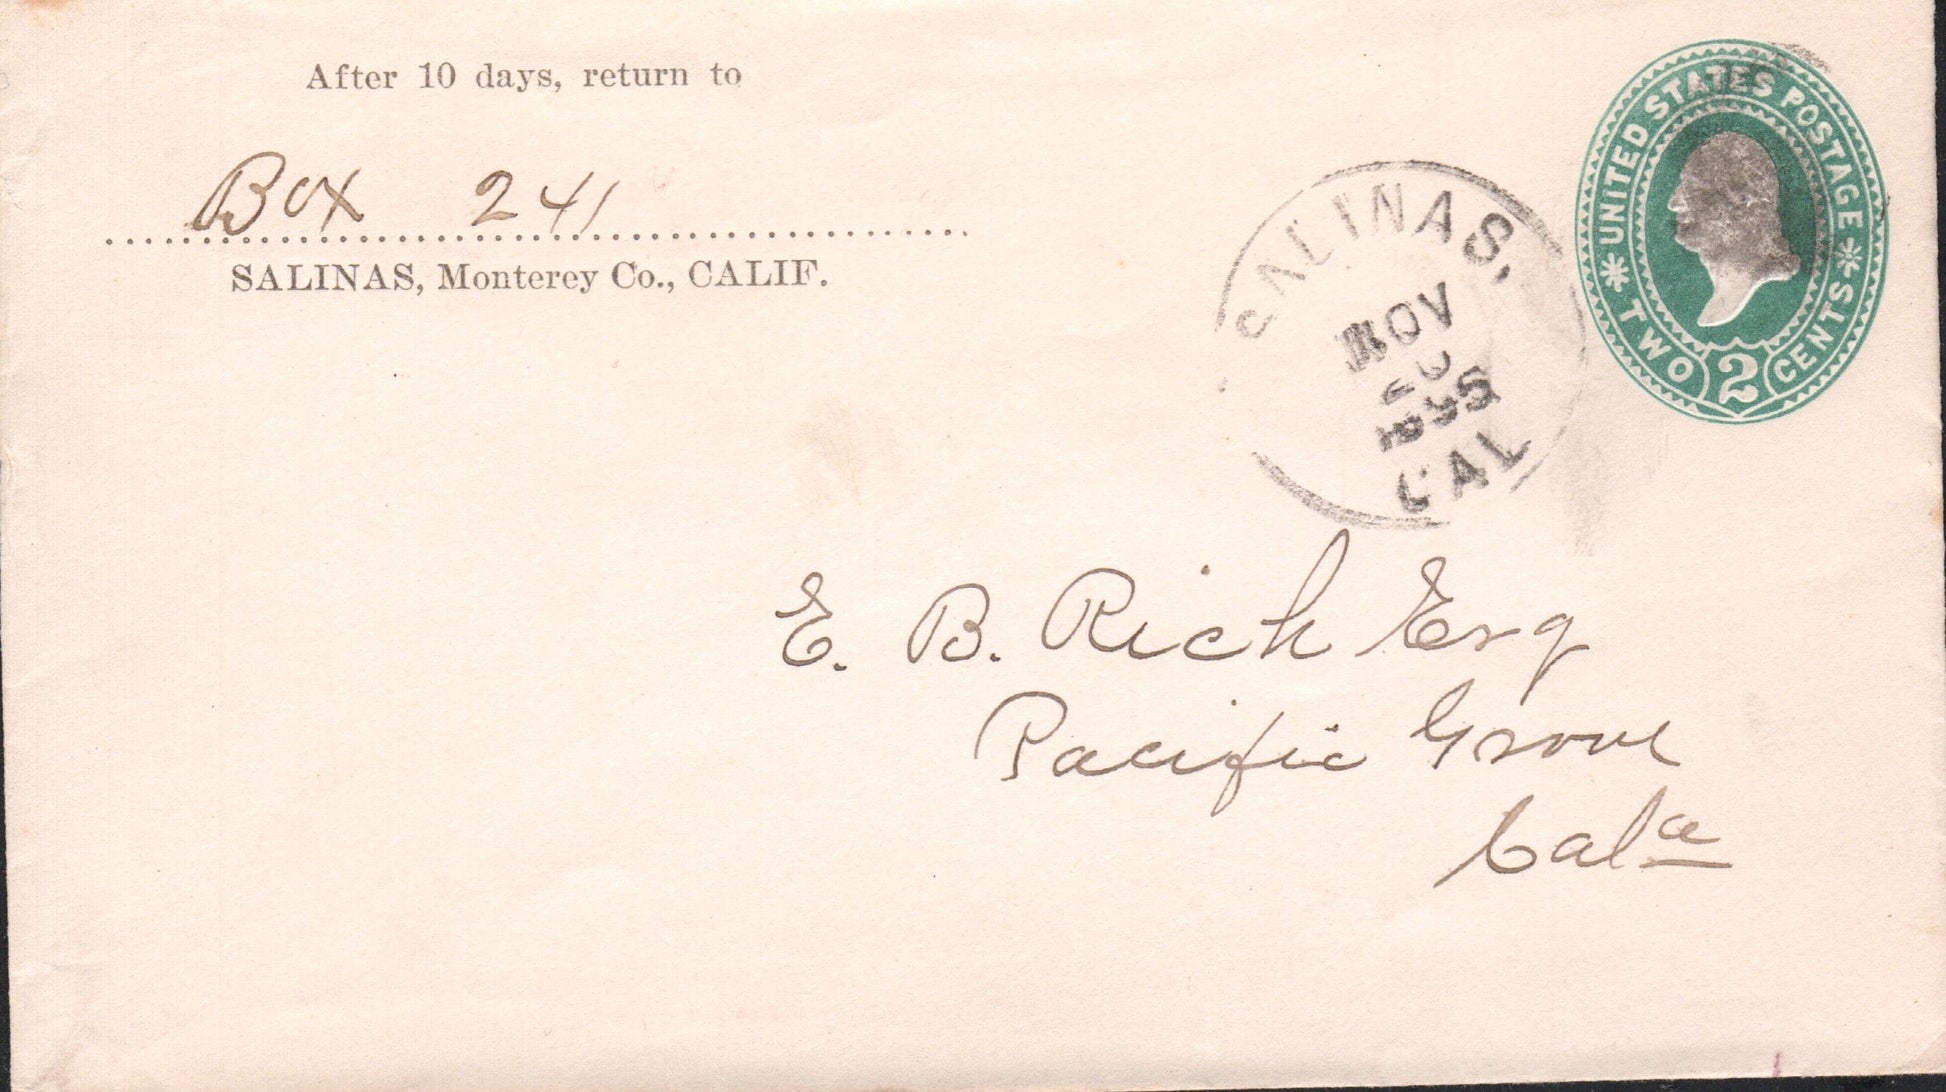 After 10 days, return to
Box 241
SALINAS, Monterey Co., CALIF.
SALINAS,
NOV
CAL
UNITED STATES POSTAGE
TWO 2 CENTS
E. B. Rich Esq
Pacific Grove
Cala